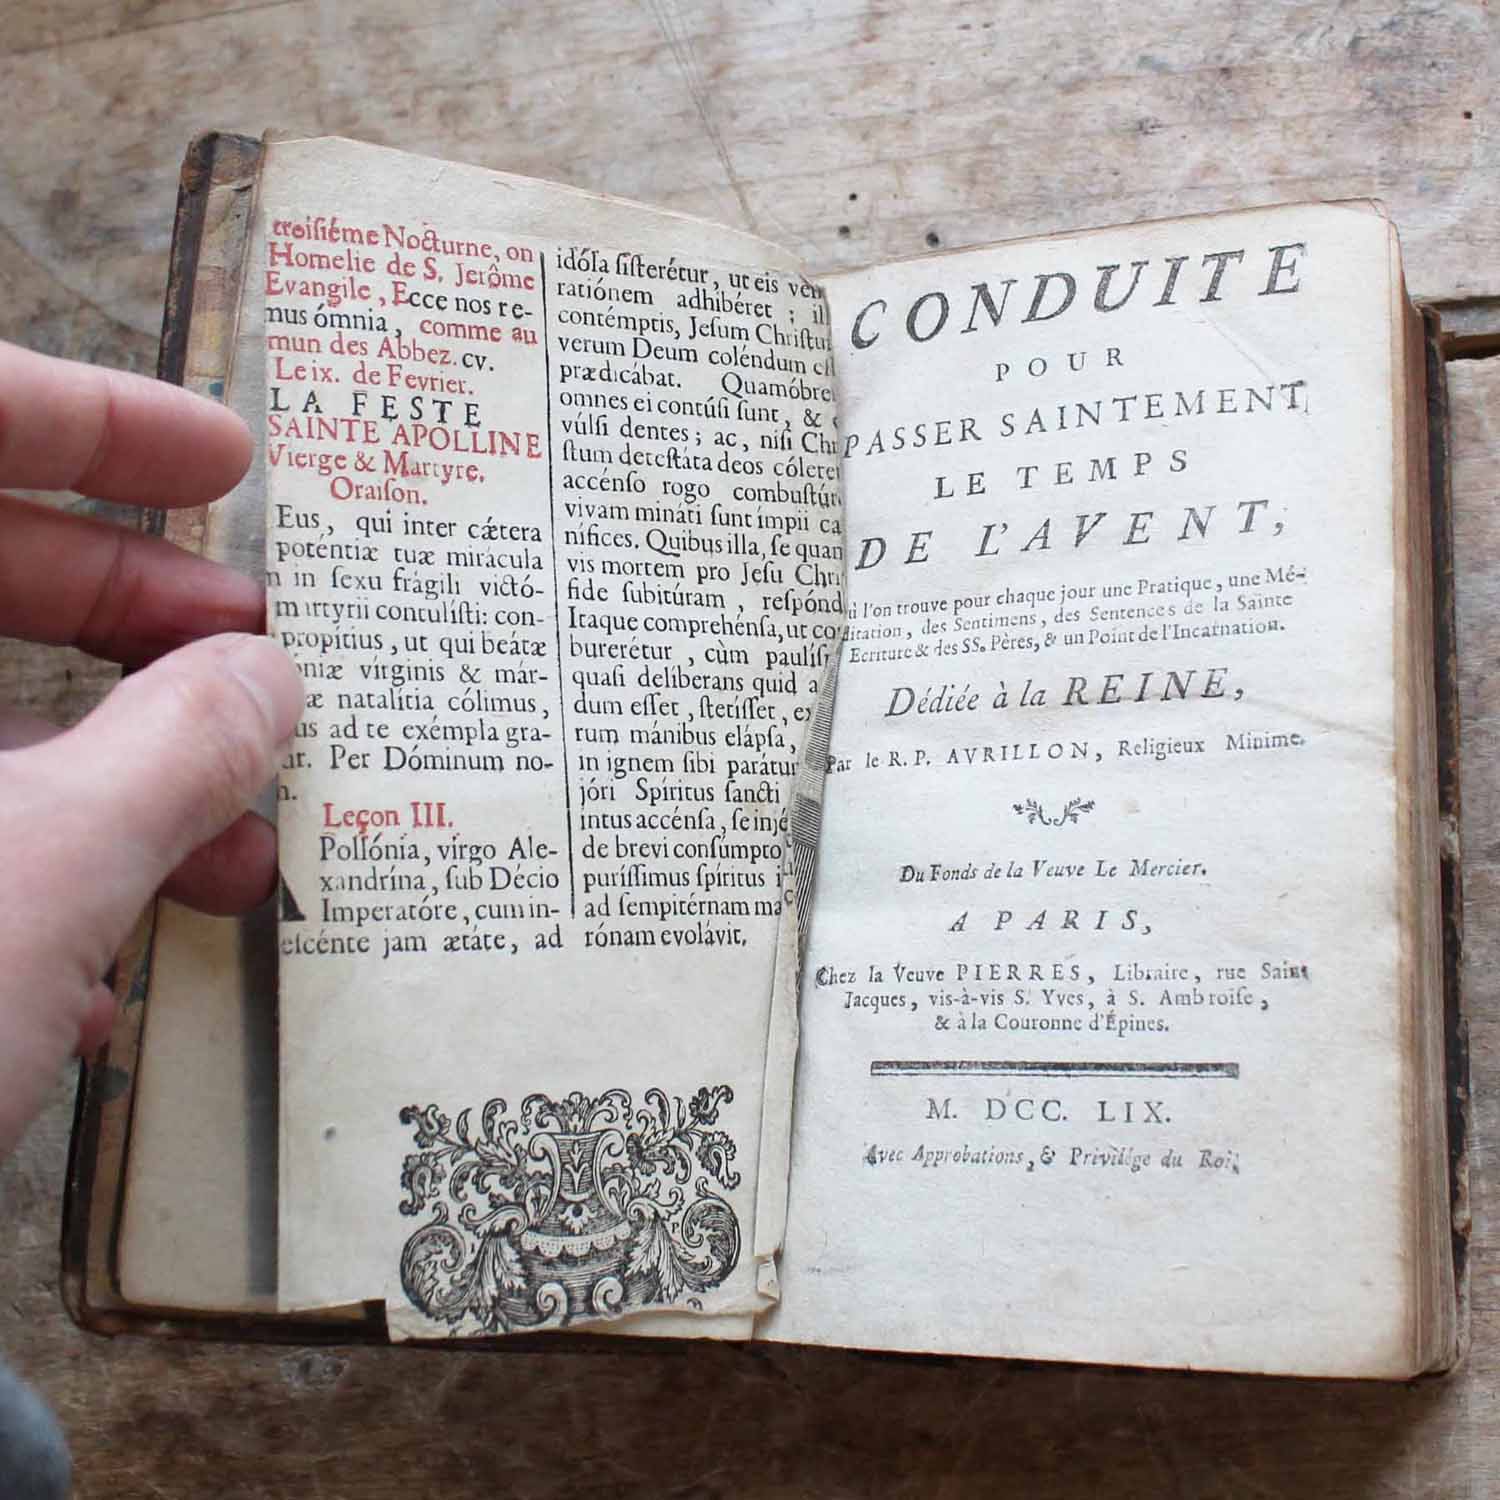 troisiéme Nocturne, on
Homelie de S. Jerôme
Evangile, Ecce nos re-
mus ómnia, comme au
mun des Abbez. cv.
Le ix. de Fevrier.
LA FESTE
SAINTE APOLLINE
Vierge & Martyre.
Oraison.
Eus, qui inter cǽtera
poténtiæ tuæ mirácula
in sexu frágili victó-
martyrii contulísti: con-
propítius, ut qui beátæ
óniæ vírginis & már-
æ natalítia cólimus,
us ad te exémpla gra-
ur. Per Dóminum no-
Leçon III.
A Pollónia, virgo Ale-
xandrína, sub Décio
Imperatóre, cum in-
escénte jam ætáte, ad
idóla sisterétur, ut eis ven
ratiónem adhibéret; il
contémptis, Jesum Christu
verum Deum coléndum es
prædicábat. Quamóbre
omnes ei contúsi sunt, &
vúlsi dentes; ac, nisi Chr
stum detestáta deos cólere
accénso rogo combustúr
vivam mináti sunt ímpii ca
nífices. Quibus illa, se quam
vis mortem pro Jesu Chri
fide subitúram, respónd
Itaque comprehénsa, ut co
burerétur, cùm paulísp
quasi delíberans quid a
dum esset, stetísset, ex
rum mánibus elápsa,
in ignem sibi parátum
jóri Spíritus sancti
intus accénsa, se injé
de brevi consúmpto
puríssimus spíritus i
ad sempitérnam ma
rónam evolávit.
CONDUITE
POUR
PASSER SAINTEMENT
LE TEMPS
DE L'AVENT,
ù l'on trouve pour chaque jour une Pratique, une Mé-
ditation, des Sentimens, des Sentences de la Sainte
Ecriture & des SS. Pères, & un Point de l'Incarnation.
Dédiée à la REINE,
Par le R. P. AVRILLON, Religieux Minime.
Du Fonds de la Veuve Le Mercier.
A PARIS,
Chez la Veuve PIERRES, Libraire, rue Saint
Jacques, vis-à-vis S. Yves, à S. Ambroise,
& à la Couronne d'Épines.
M. DCC. LIX.
Avec Approbations, & Privilége du Roi.